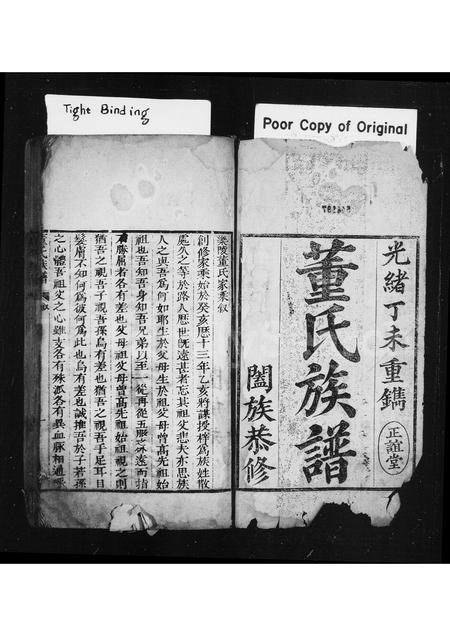 Tight Binding
Poor Copy of Original
光緒丁未重鐫
正誼堂
董氏族譜
闔族恭修
董氏家乘叙
創修家乘始於癸亥歷十三年乙亥將謀授梓爲族姓散
處久之等於路人歷世既遠甚者忘其祖父悲夫亦思族
人之與吾爲何如耶生於父母父母生於祖父母曾高先祖始
祖也吾知吾身知吾兄弟以至一從再從五服
屬者各有差也父母祖父母曾高先祖始祖視之則
猶吾之視吾子視吾孫烏有差也猶吾之視吾手足耳目
髮膚不知何爲彼何爲此也烏有差也誠推吾於子若孫
之心體吾祖父之心雖支各有殊派各有異血脈相通